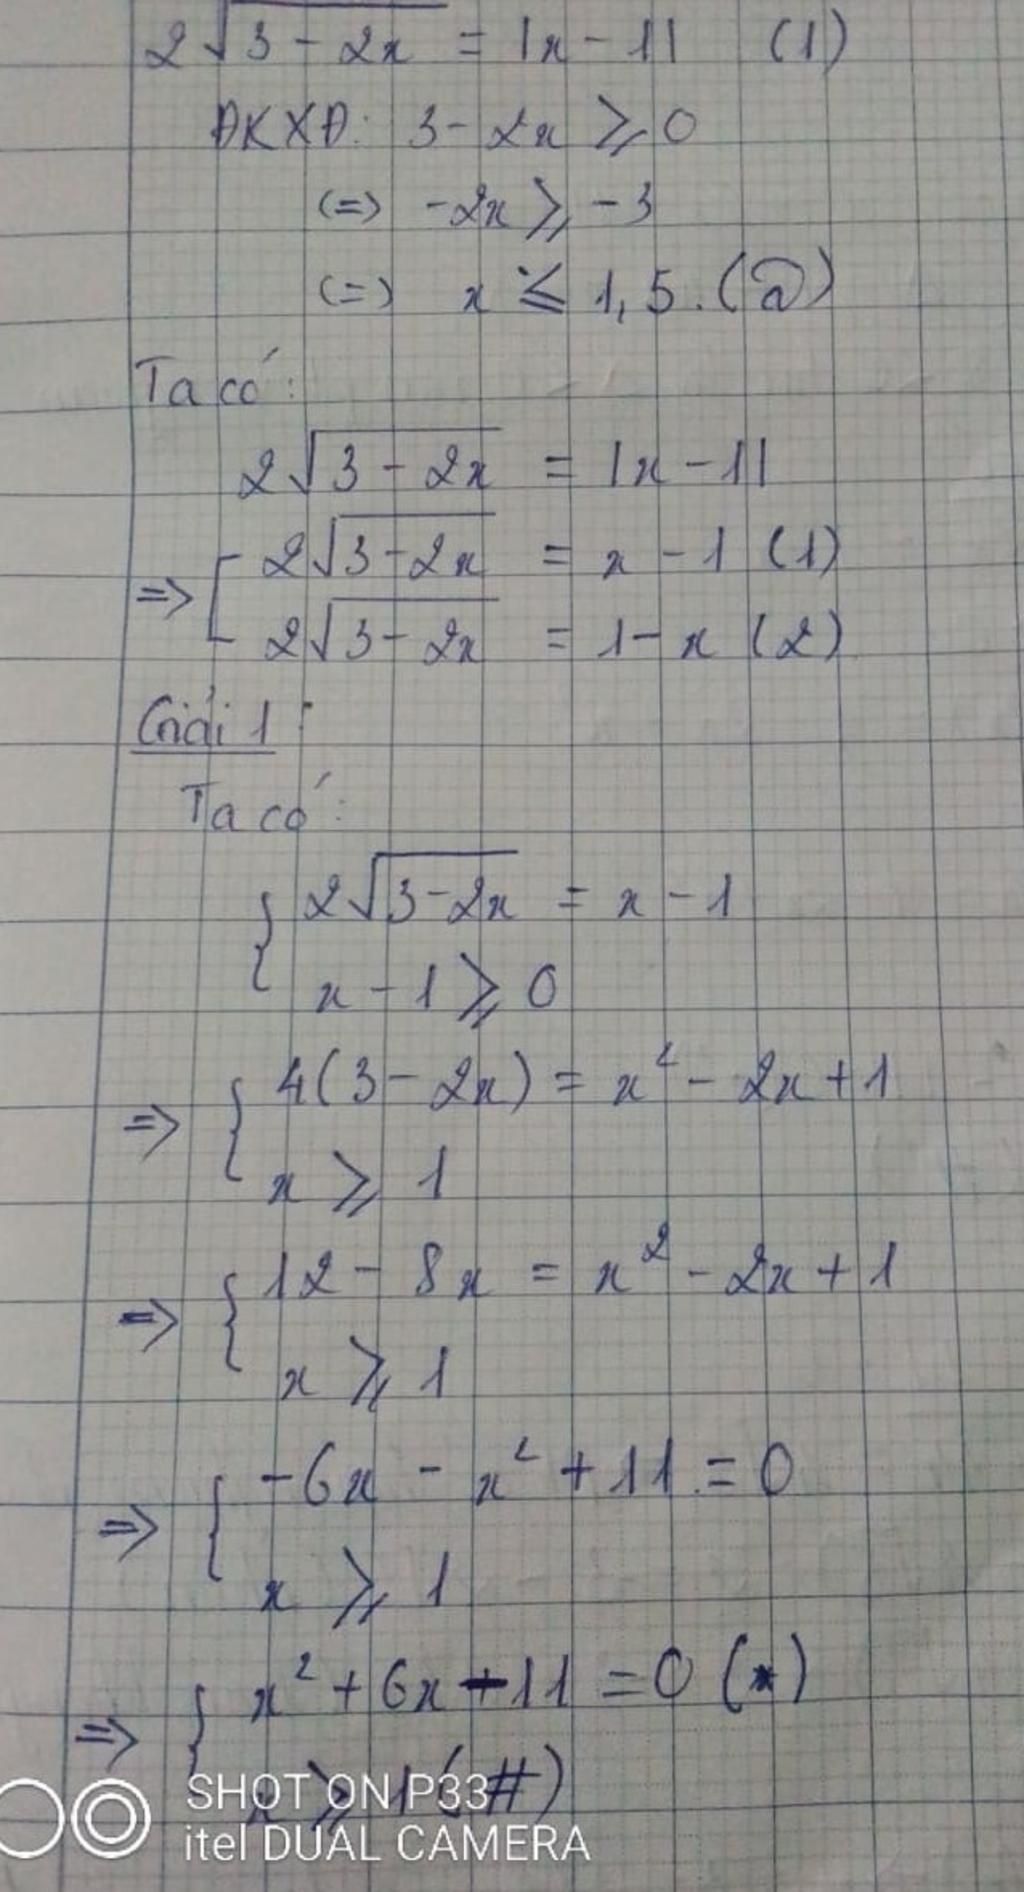 2√(3 - 2x) = |x - 1| (1)
ĐKXĐ: 3 - 2x ⩾ 0
(=) -2x ⩾ -3
(=) x ⩽ 1,5. (a)
Ta có:
2√(3 - 2x) = |x - 1|
=> [ 2√(3 - 2x) = x - 1 (1)
2√(3 - 2x) = 1 - x (2)
Giải 1:
Ta có:
{ 2√(3 - 2x) = x - 1
x - 1 ⩾ 0
=> { 4(3 - 2x) = x² - 2x + 1
x ⩾ 1
=> { 12 - 8x = x² - 2x + 1
x ⩾ 1
=> { -6x - x² + 11 = 0
x ⩾ 1
=> { x² + 6x - 11 = 0 (*)
x ⩾ 1 (#)
SHOT ON P33
itel DUAL CAMERA